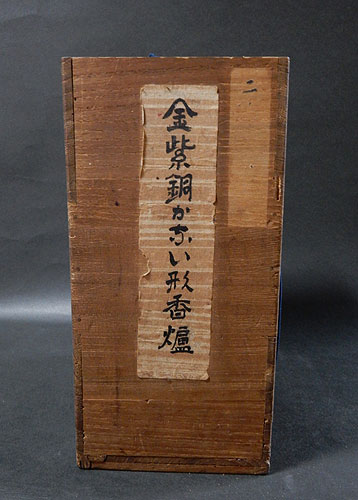 二
金紫銅かない形香爐